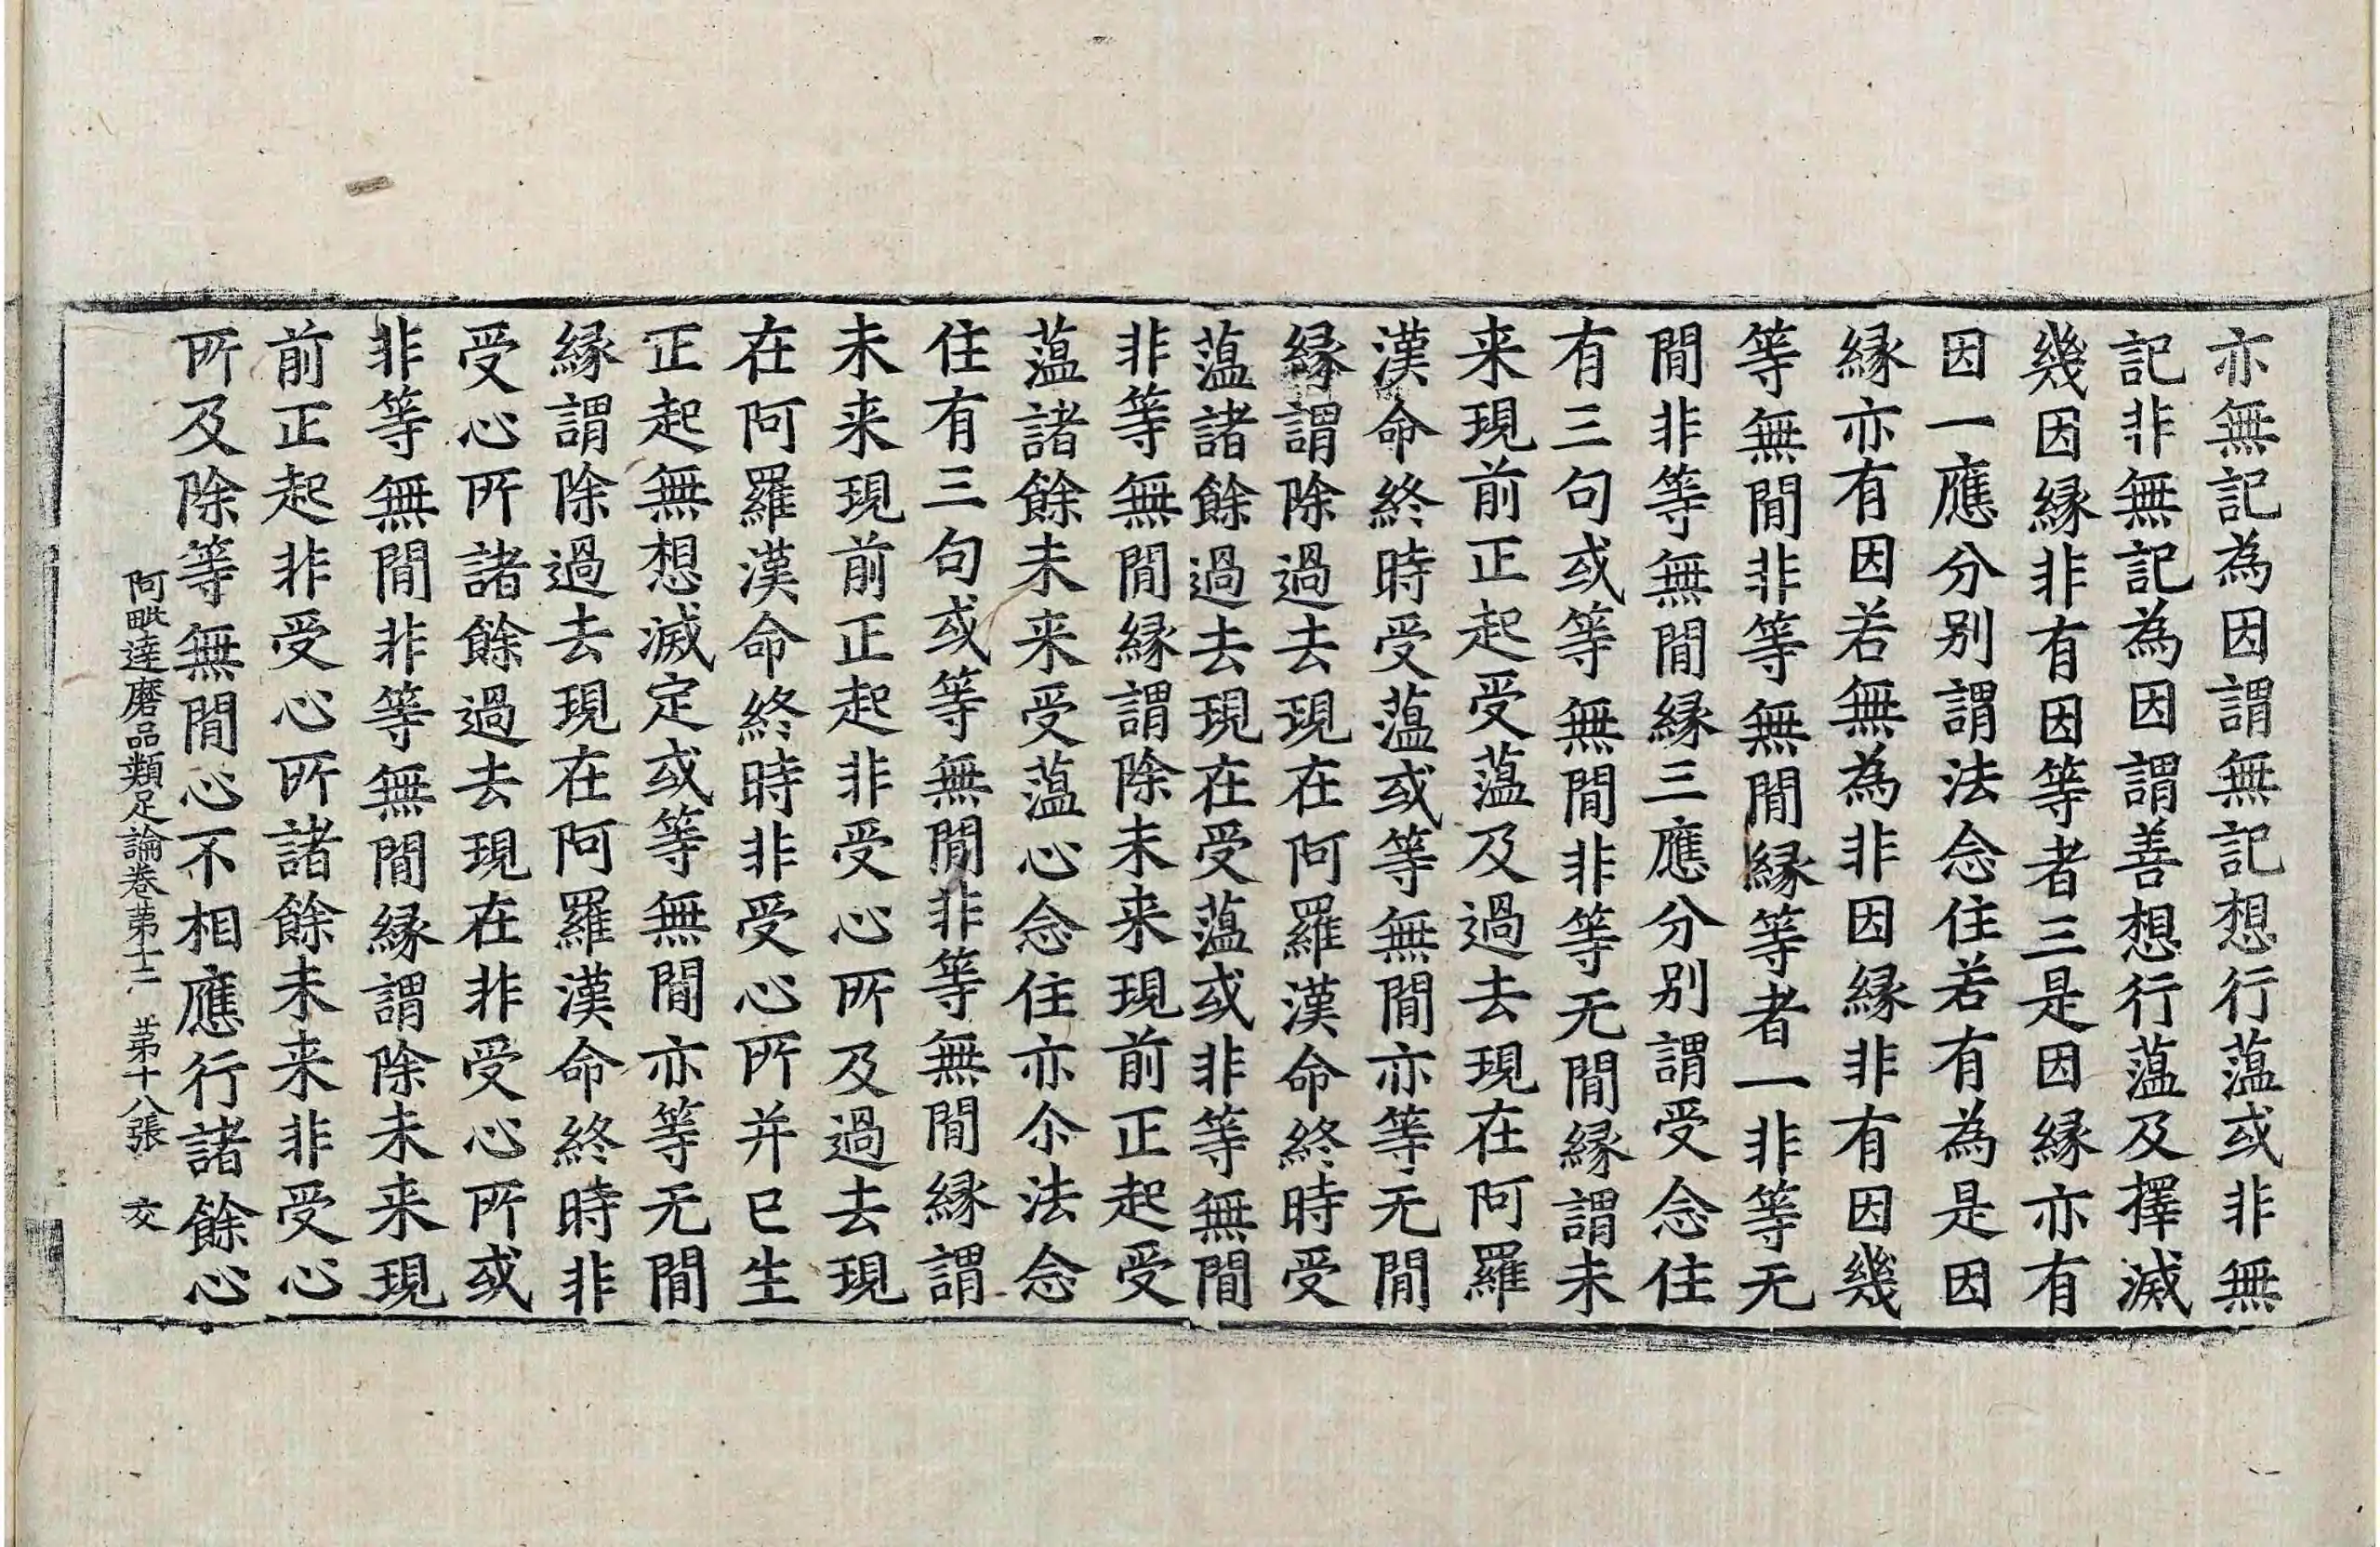 亦無記為因謂無記想行藴或非無
記非無記為因謂善想行藴及擇滅
幾因縁非有因等者三是因縁亦有
因一應分别謂法念住若有為是因
縁亦有因若無為非因縁非有因幾
等無間非等無間縁等者一非等无
間非等無間縁三應分别謂受念住
有三句或等無間非等无間縁謂未
来現前正起受藴及過去現在阿羅
漢命終時受藴或等無間亦等无間
縁謂除過去現在阿羅漢命終時受
藴諸餘過去現在受藴或非等無間
非等無間縁謂除未来現前正起受
藴諸餘未来受藴心念住亦尒法念
住有三句或等無間非等無間縁謂
未来現前正起非受心所及過去現
在阿羅漢命終時非受心所并已生
正起無想滅定或等無間亦等无間
縁謂除過去現在阿羅漢命終時非
受心所諸餘過去現在非受心所或
非等無間非等無間縁謂除未来現
前正起非受心所諸餘未来非受心
所及除等無間心不相應行諸餘心
阿毗達磨品類足論卷第十二 第十八張 交